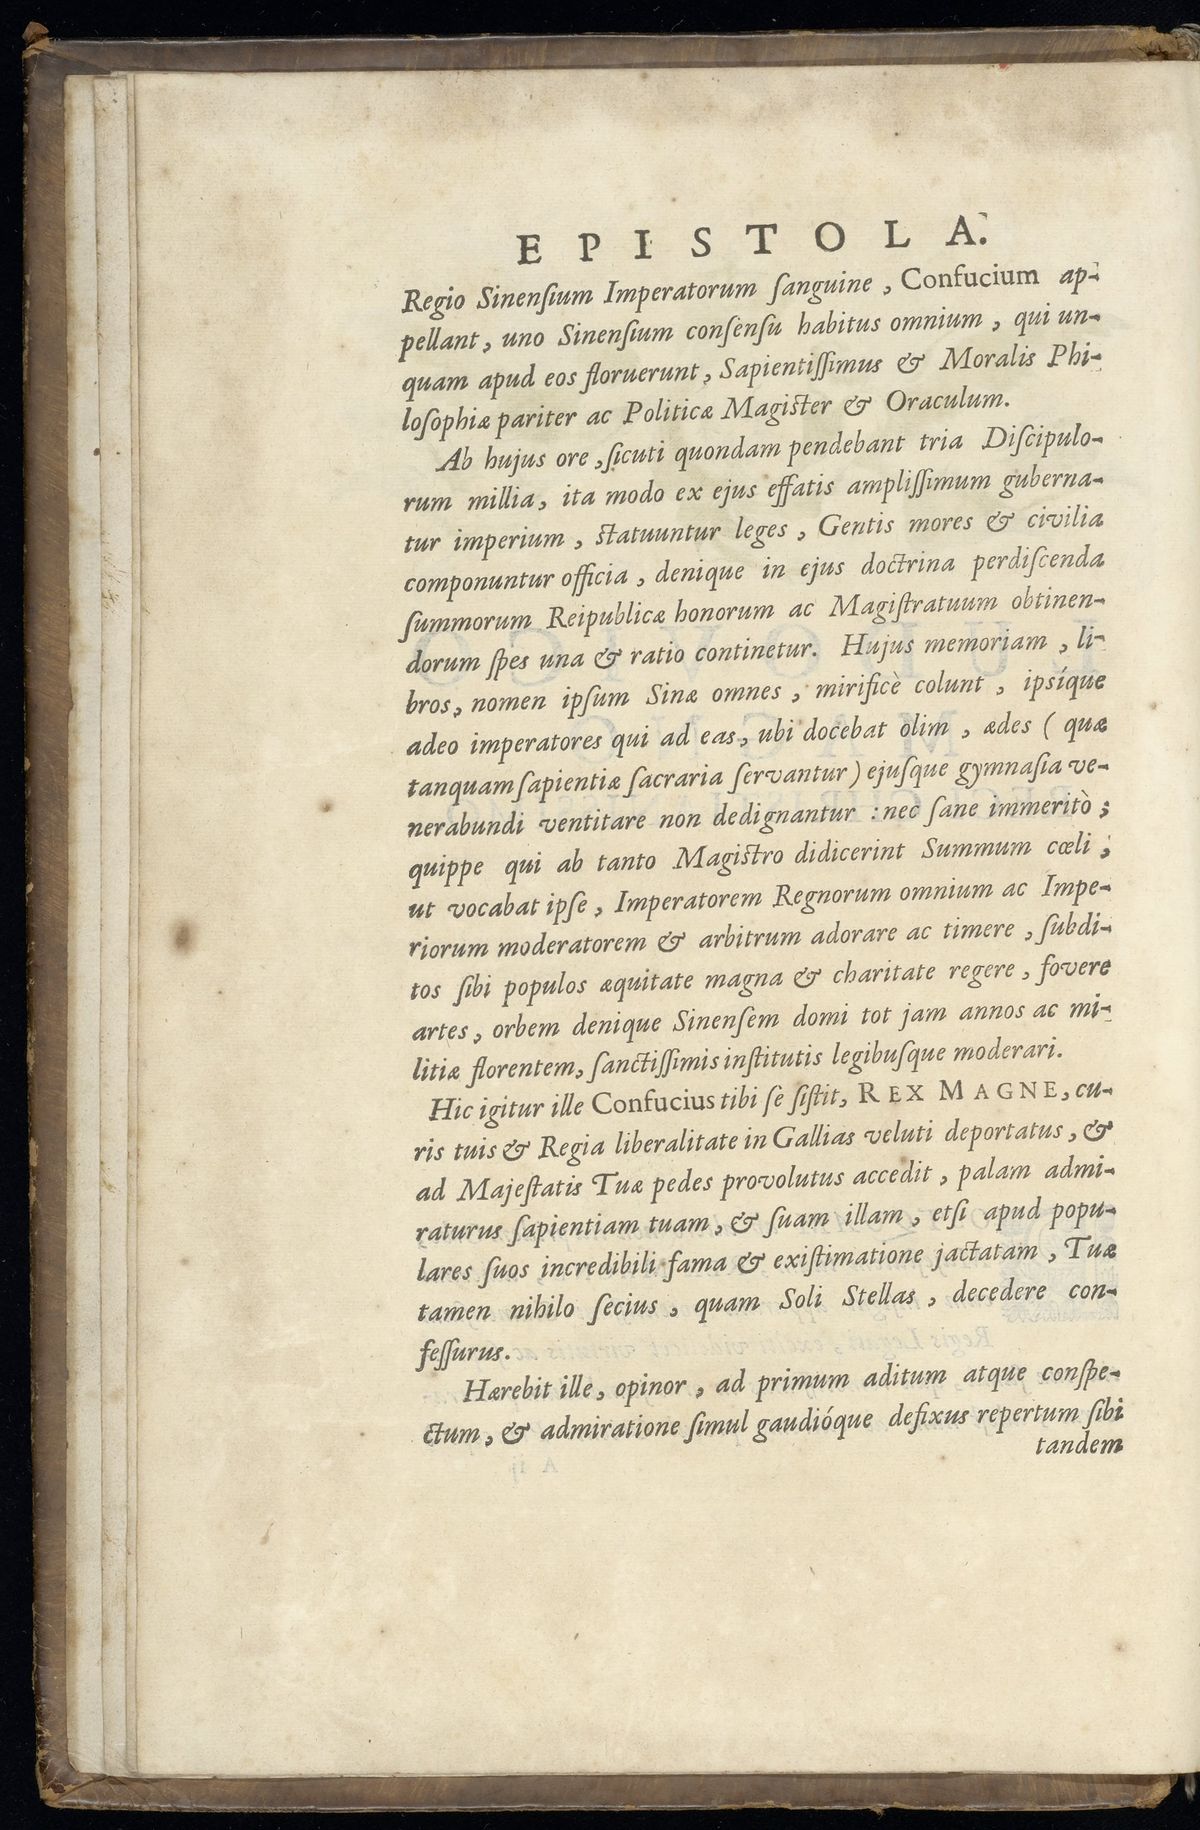 EPISTOLA.
Regio Sinenſium Imperatorum ſanguine, Confucium ap-
pellant, uno Sinenſium conſenſu habitus omnium, qui un-
quam apud eos floruerunt, Sapientiſſimus & Moralis Phi-
loſophiæ pariter ac Politicæ Magiſter & Oraculum.
Ab hujus ore, ſicuti quondam pendebant tria Diſcipulo-
rum millia, ita modo ex ejus effatis ampliſſimum guberna-
tur imperium, ſtatuuntur leges, Gentis mores & civilia
componuntur officia, denique in ejus doctrina perdiſcenda
ſummorum Reipublicæ honorum ac Magiſtratuum obtinen-
dorum ſpes una & ratio continetur. Hujus memoriam, li-
bros, nomen ipſum Sinæ omnes, mirificè colunt, ipsíque
adeo imperatores qui ad eas, ubi docebat olim, ædes (quæ
tanquam ſapientiæ ſacraria ſervantur) ejuſque gymnaſia ve-
nerabundi ventitare non dedignantur: nec ſane immeritò;
quippe qui ab tanto Magiſtro didicerint Summum cœli,
ut vocabat ipſe, Imperatorem Regnorum omnium ac Impe-
riorum moderatorem & arbitrum adorare ac timere, ſubdi-
tos ſibi populos æquitate magna & charitate regere, fovere
artes, orbem denique Sinenſem domi tot jam annos ac mi-
litiæ florentem, ſanctiſſimis inſtitutis legibuſque moderari.
Hic igitur ille Confucius tibi ſe ſiſtit, REX MAGNE, cu-
ris tuis & Regia liberalitate in Gallias veluti deportatus, &
ad Majeſtatis Tuæ pedes provolutus accedit, palam admi-
raturus ſapientiam tuam, & ſuam illam, etſi apud popu-
lares ſuos incredibili fama & exiſtimatione jactatam, Tuæ
tamen nihilo ſecius, quam Soli Stellas, decedere con-
feſſurus.
Hærebit ille, opinor, ad primum aditum atque conſpe-
ctum, & admiratione ſimul gaudióque defixus repertum ſibi
tandem